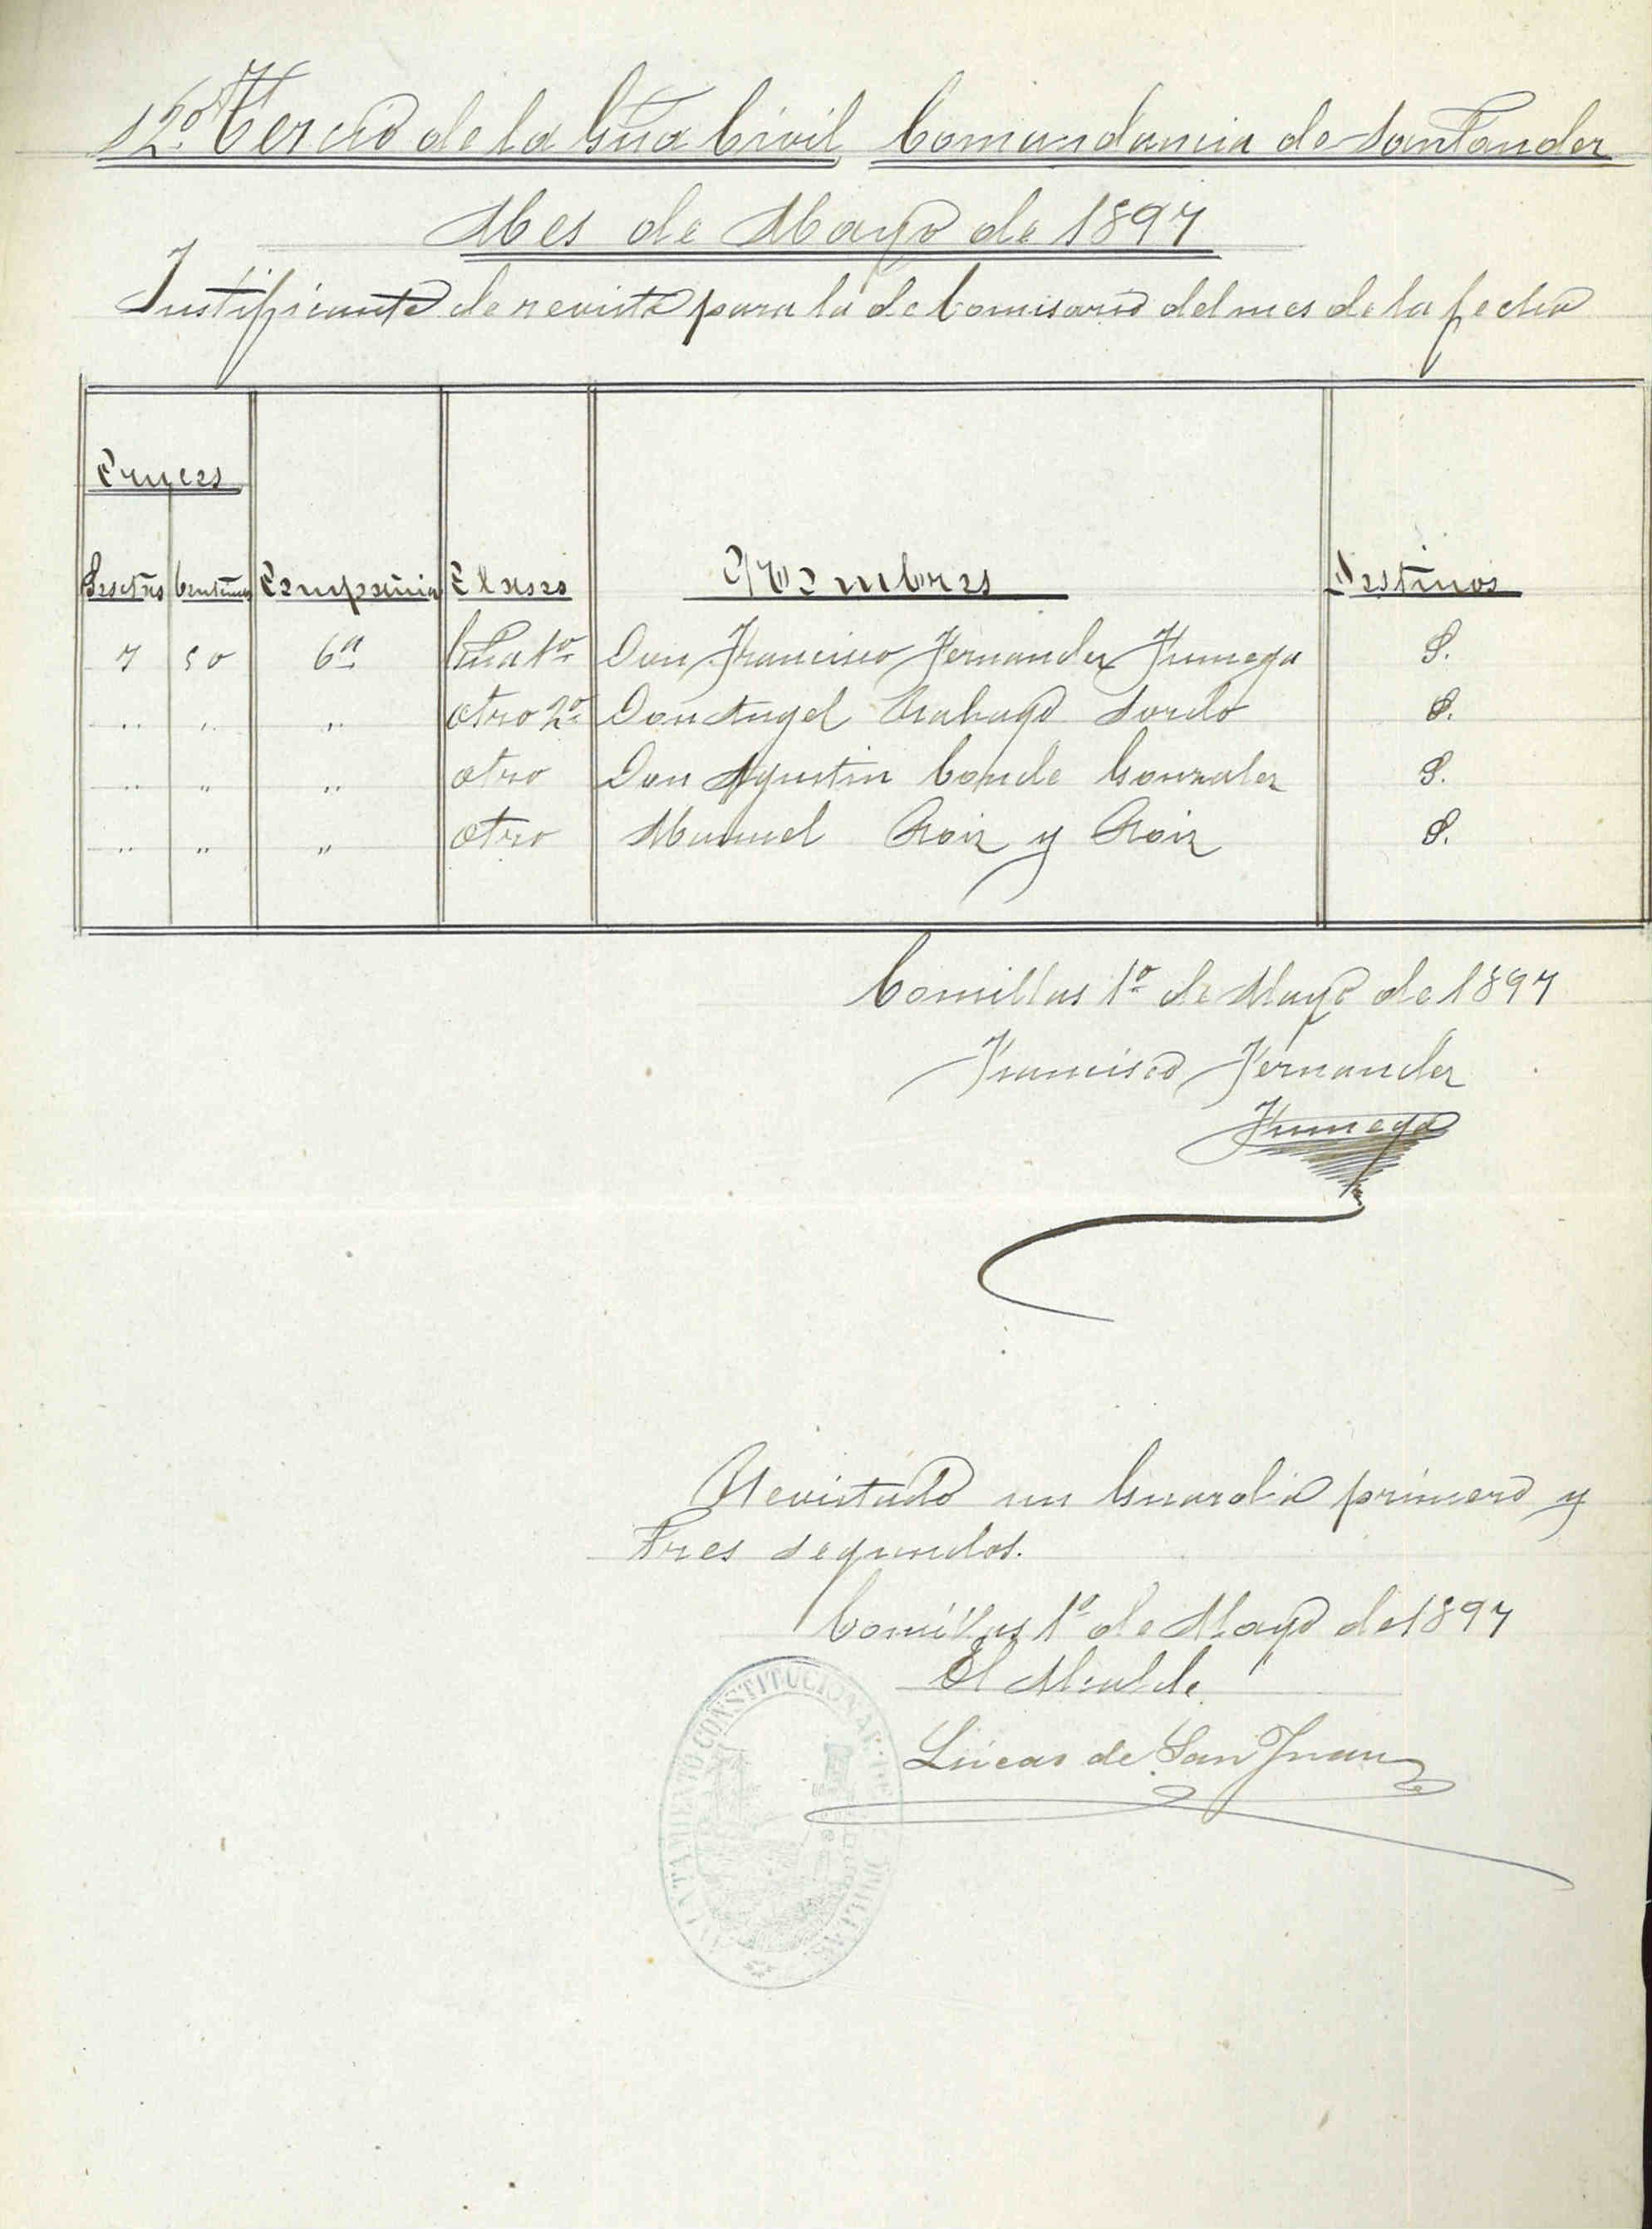 12º Tercio de la Gua Civil Comandancia de Santander
Mes de Mayo de 1897
Justificante de revista para la de Comisario del mes de la fecha
Cruces
Pesetas Centimos Compañia Clases Nombres Destinos
7 50 6ª Gua 1º Don Francisco Fernandez Fumega P.
" " " Otro 2º Don Angel Rabago Sordo P.
" " " Otro Don Agustin Conde Gonzalez P.
" " " Otro Manuel Roiz y Roiz P.
Comillas 1º de Mayo de 1897
Francisco Fernandez
Fumega
Revistado un Guardia primero y
tres segundos.
Comillas 1º de Mayo de 1897
El Alcalde
Lúcas de San Juan
AYUNTAMIENTO CONSTITUCIONAL DE COMILLAS